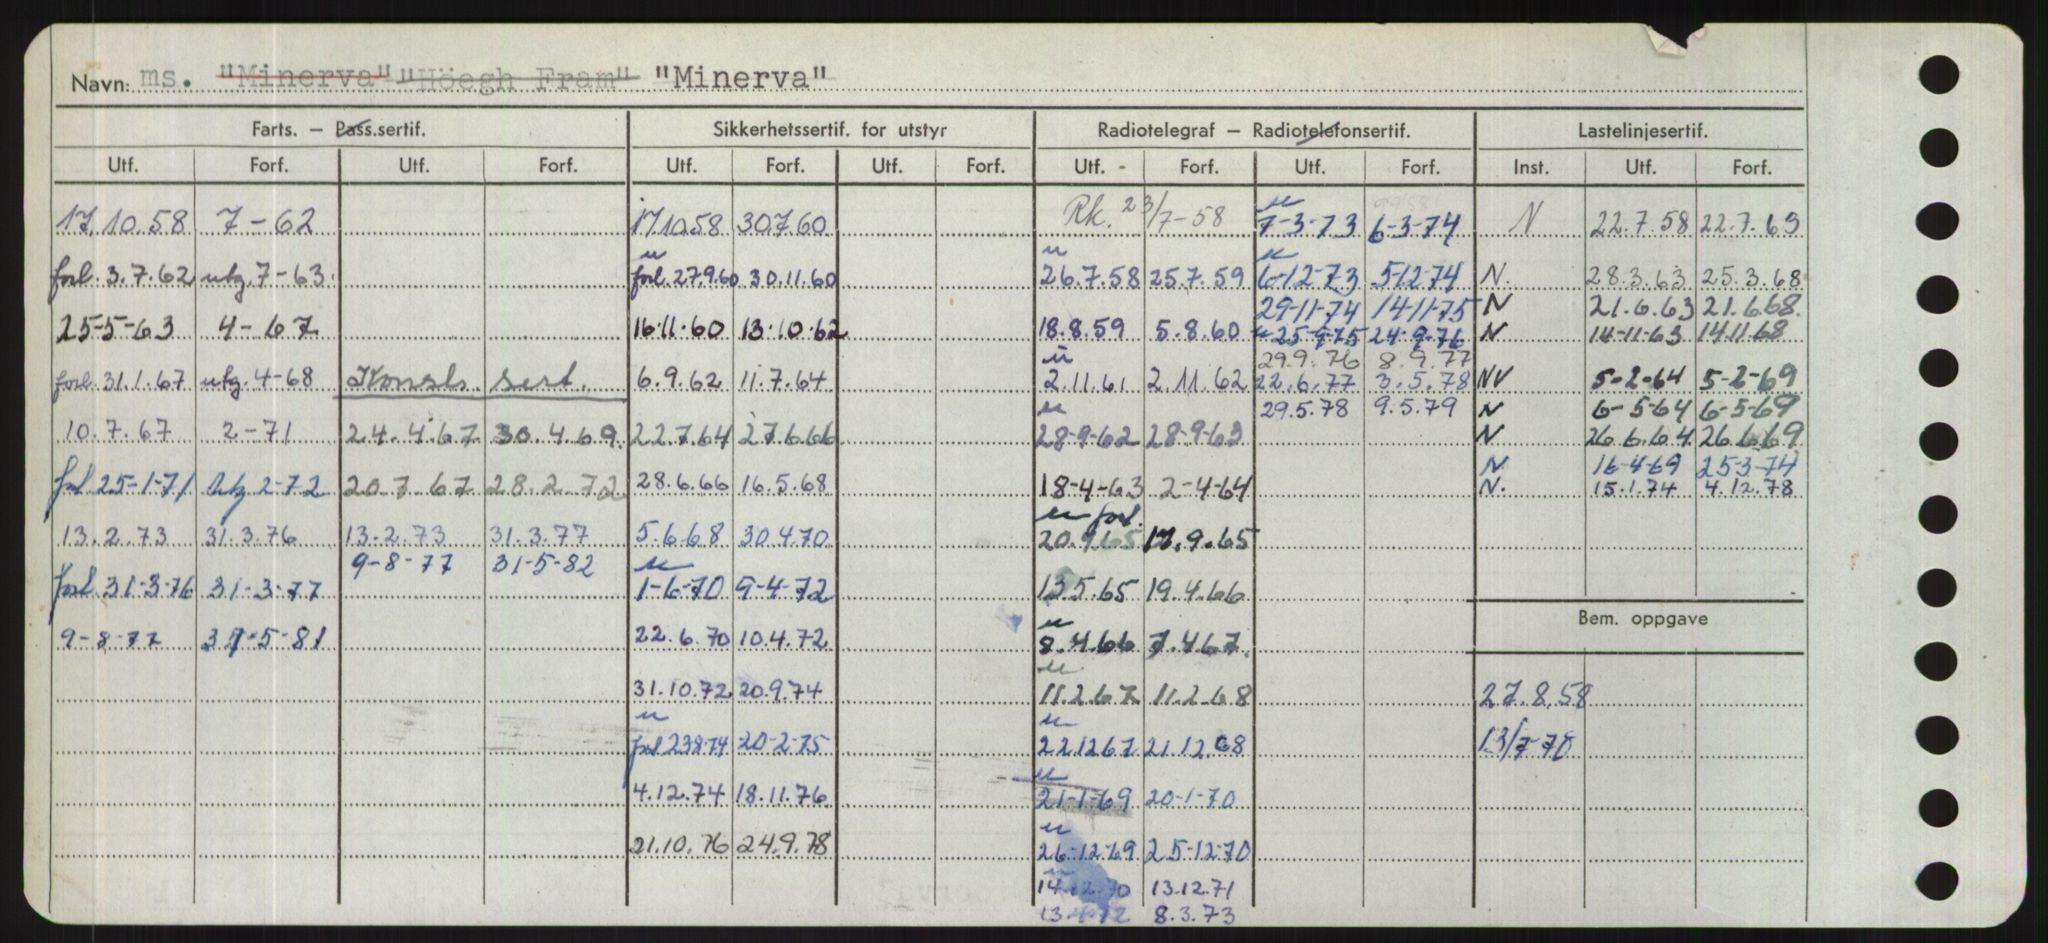 Navn: ms. "Minerva" "Höegh Fram" "Minerva"
Farts. – Pass.sertif. Sikkerhetssertif. for utstyr Radiotelegraf – Radiotelefonsertif. Lastelinjesertif.
Utf. Forf. Utf. Forf. Utf. Forf. Utf. Forf. Utf. - Forf. Utf. Forf. Inst. Utf. Forf.
17.10.58 7-62 17.10.58 30.7.60 Rk. 23/7-58 7-3-73 6-3-74 N 22.7.58 22.7.63
forl. 3.7.62 utg. 7-63. forl. 27.9.60 30.11.60 26.7.58 25.7.59 6-12-73 5-12-74 N. 28.3.63 25.3.68
29-11-74 14-11-75 N 21.6.63 21.6.68.
25-5-63 4-67 16.11.60 13.10.62 18.8.59 5.8.60 25-9-75 24-9-76 N 14-11-63 14.11.68
29.9.76 8.9.77
forl. 31.1.67 utg. 4-68 Konstr. sert. 6.9.62 11.7.64 2.11.61 2.11.62 22.6.77 3.5.78 NV 5-2-64 5-2-69
29.5.78 9.5.79 N 6-5-64 6-5-69
10.7.67 2-71 24.4.67 30.4.69. 22.7.64 27.6.66 28-9-62 28-9-63 N 26.6.64 26.6.69
N. 16-4-69 25-3-74
forl 25-1-71 utg 2-72 20.7.67 28.2.72 28.6.66 16.5.68 18-4-63 2-4-64 N. 15.1.74 4.12.78
forl.
13.2.73 31.3.76 13.2.73 31.3.77 5.6.68 30.4.70 20.9.65 17.9.65
9-8-77 31-5-82
forl 31-3-76 31-3-77 1-6-70 9-4-72 13.5.65 19.4.66
Bem. oppgave
9-8-77 31-5-81 22.6.70 10.4.72 8.4.66 7.4.67.
31.10.72 20.9.74 11.2.67 11.2.68 27.8.58
forl 23.8.74 20-2-75 22.12.67 21.12.68 13/7-70
4.12.74 18.11.76 21-1-69 20-1-70
21.10.76 24.9.78 26-12-69 25-12-70
14.12.70 13.12.71
8.3.73